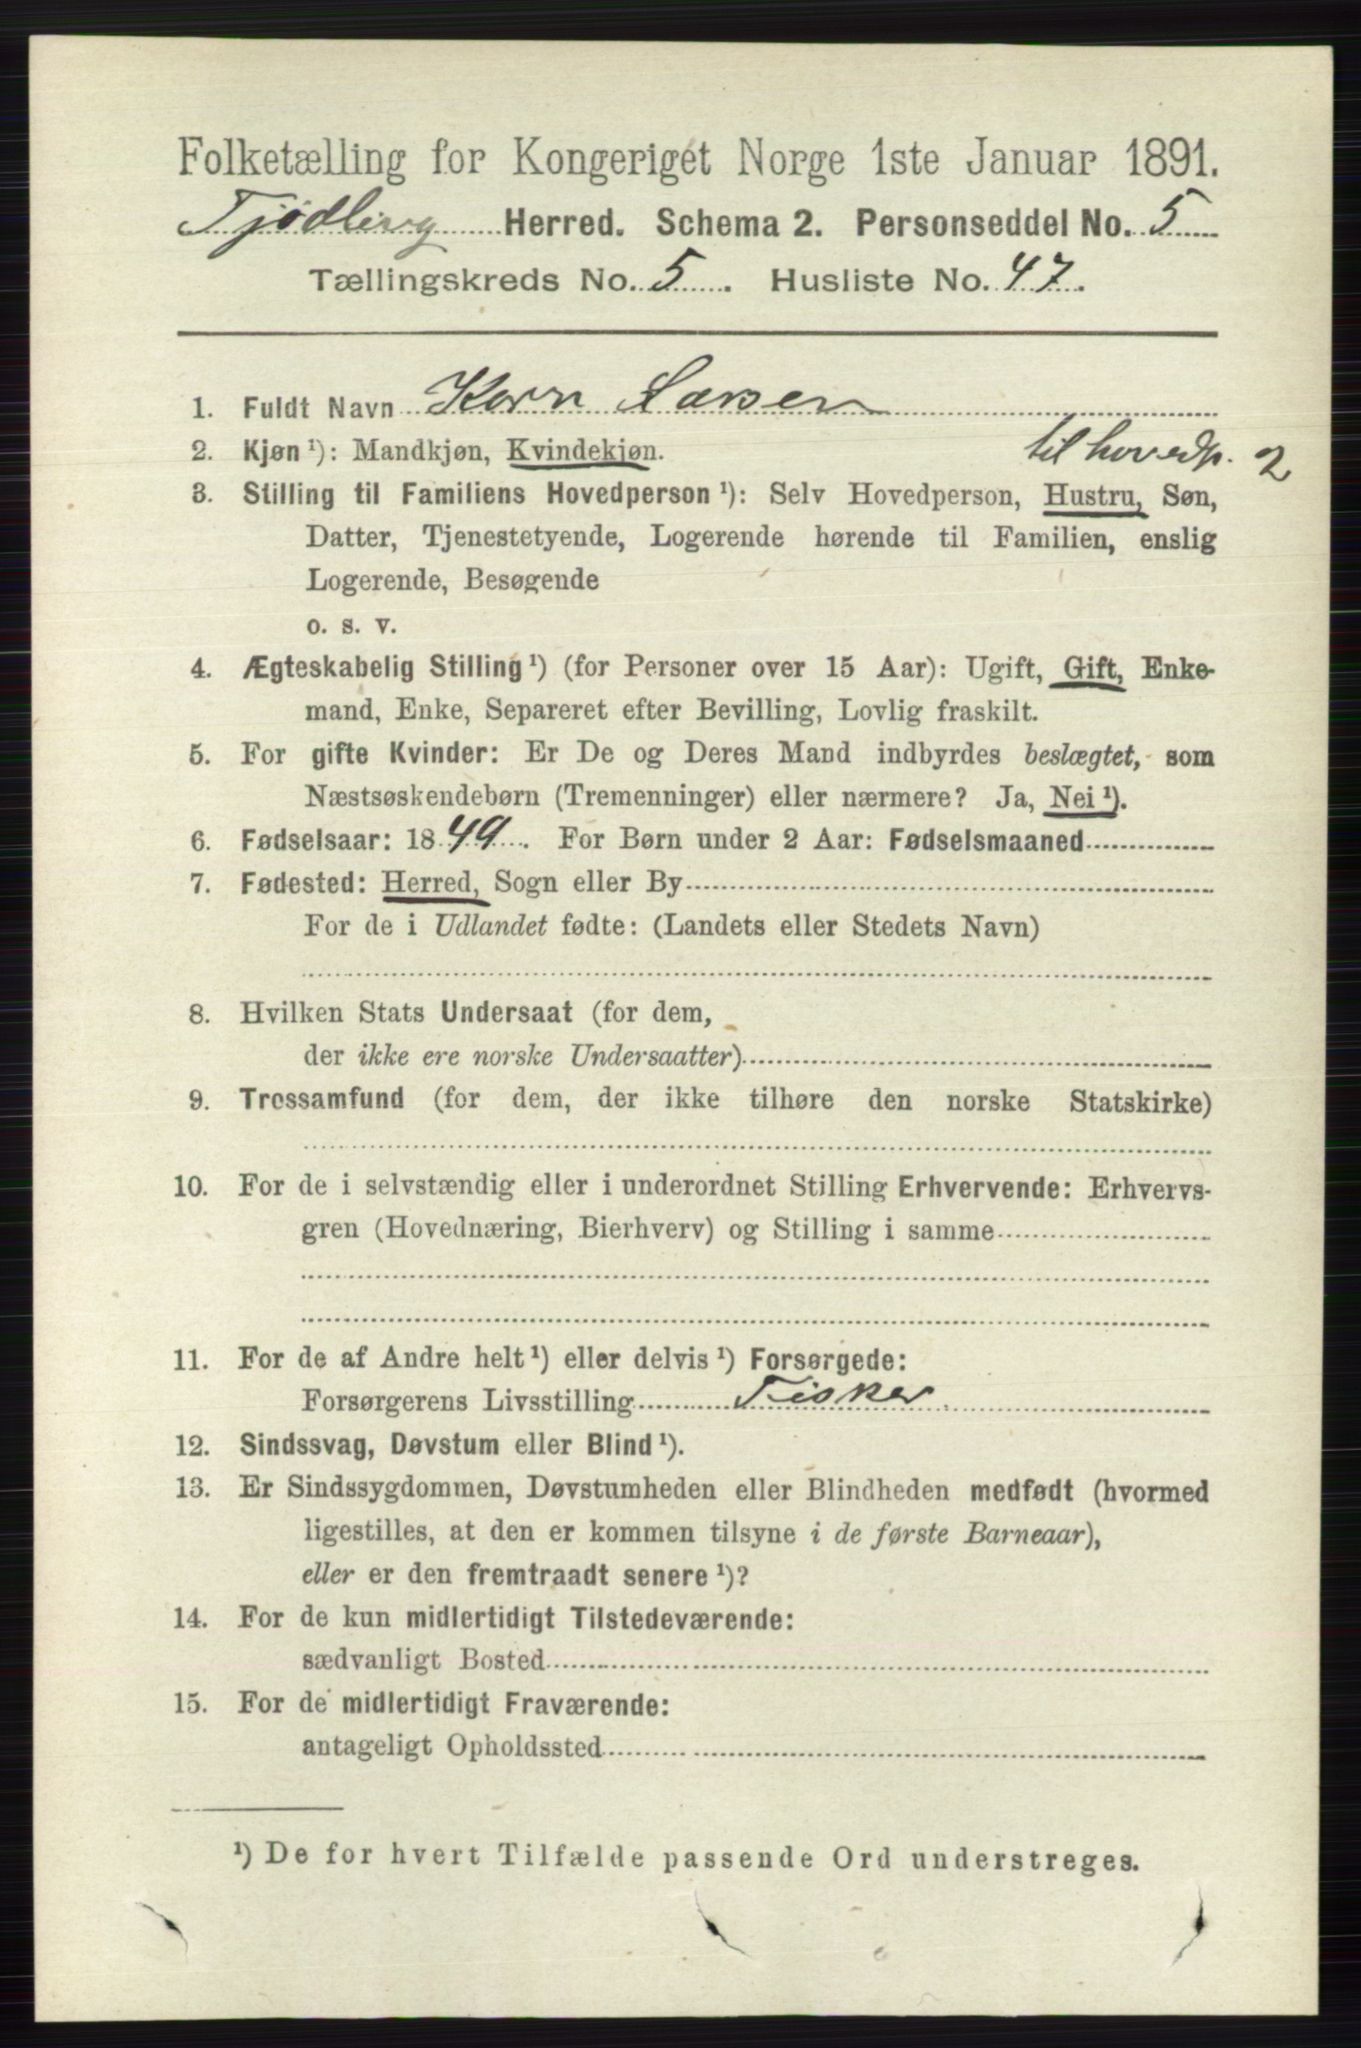 Folketælling for Kongeriget Norge 1ste Januar 1891.
Tjødling Herred. Schema 2. Personseddel No. 5
Tællingskreds No. 5. Husliste No. 47.
1. Fuldt Navn Karn Larsen
2. Kjøn ¹): Mandkjøn, Kvindekjøn.
til hovedp. 2
3. Stilling til Familiens Hovedperson ¹): Selv Hovedperson, Hustru, Søn,
Datter, Tjenestetyende, Logerende hørende til Familien, enslig
Logerende, Besøgende
o. s. v.
4. Ægteskabelig Stilling ¹) (for Personer over 15 Aar): Ugift, Gift, Enke-
mand, Enke, Separeret efter Bevilling, Lovlig fraskilt.
5. For gifte Kvinder: Er De og Deres Mand indbyrdes beslægtet, som
Næstsøskendebørn (Tremenninger) eller nærmere? Ja, Nei ¹).
6. Fødselsaar: 1849. For Børn under 2 Aar: Fødselsmaaned
7. Fødested: Herred, Sogn eller By
For de i Udlandet fødte: (Landets eller Stedets Navn)
8. Hvilken Stats Undersaat (for dem,
der ikke ere norske Undersaatter)
9. Trossamfund (for dem, der ikke tilhøre den norske Statskirke)
10. For de i selvstændig eller i underordnet Stilling Erhvervende: Erhvervs-
gren (Hovednæring, Bierhverv) og Stilling i samme
11. For de af Andre helt ¹) eller delvis ¹) Forsørgede:
Forsørgerens Livsstilling Fisker
12. Sindssvag, Døvstum eller Blind ¹).
13. Er Sindssygdommen, Døvstumheden eller Blindheden medfødt (hvormed
ligestilles, at den er kommen tilsyne i de første Barneaar),
eller er den fremtraadt senere ¹)?
14. For de kun midlertidigt Tilstedeværende:
sædvanligt Bosted
15. For de midlertidigt Fraværende:
antageligt Opholdssted
¹) De for hvert Tilfælde passende Ord understreges.